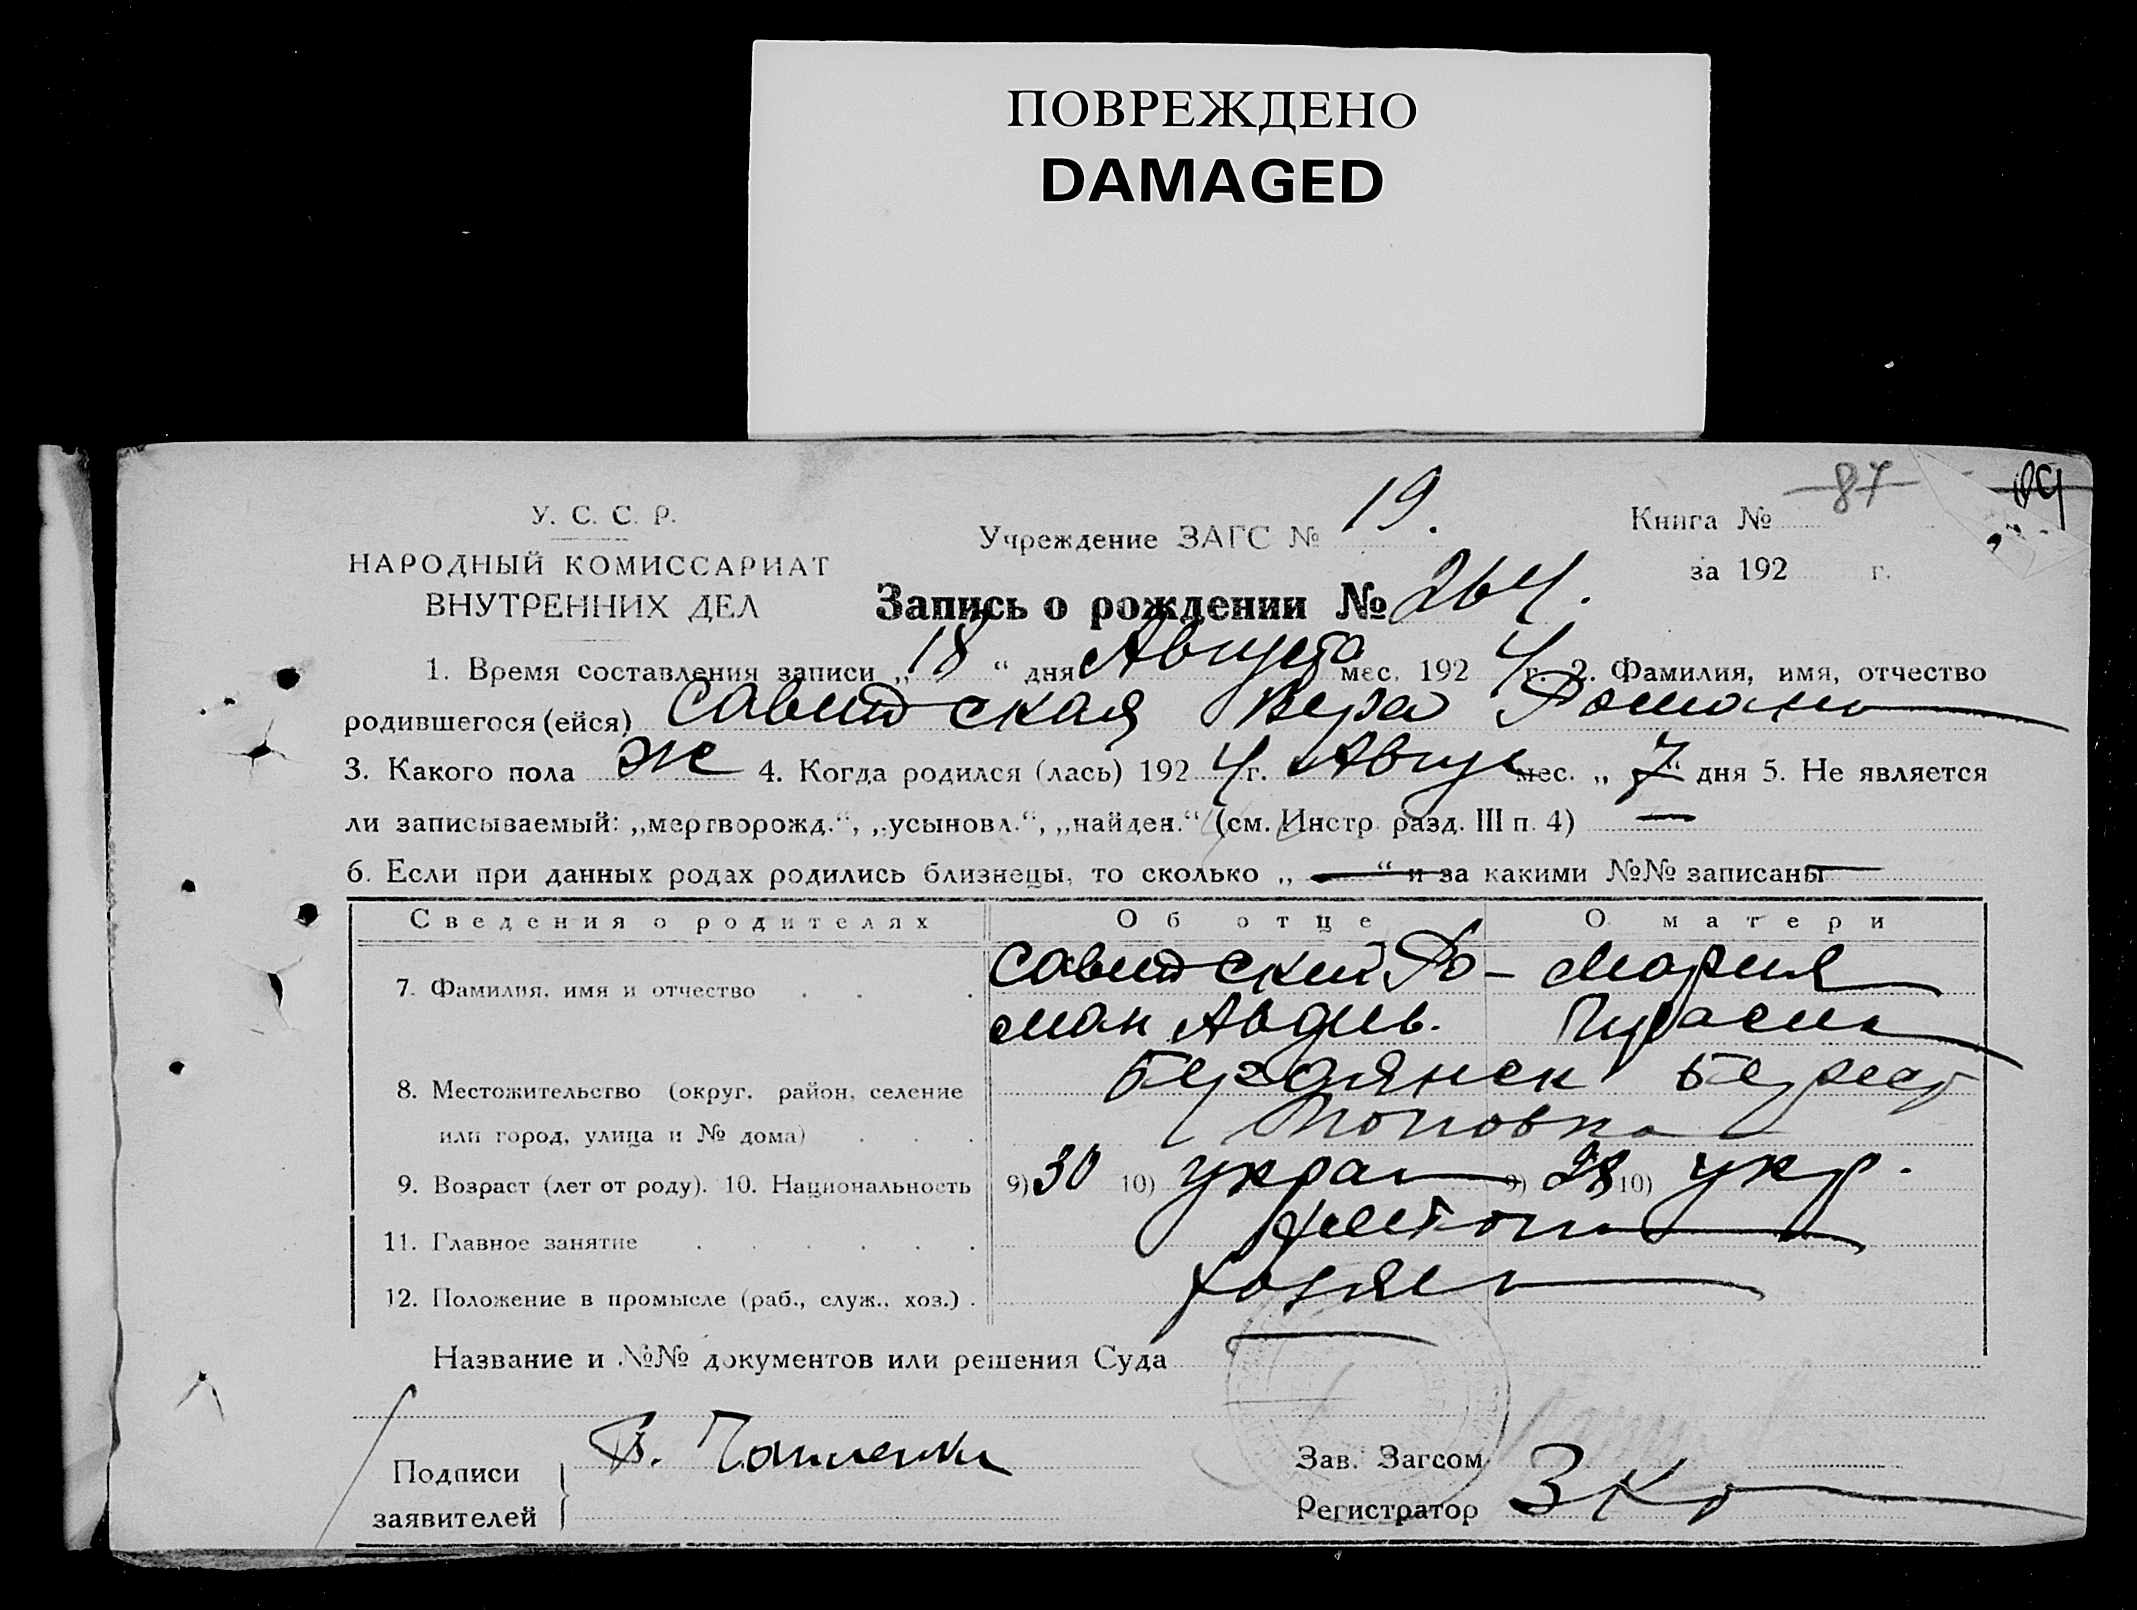 ПОВРЕЖДЕНО
DAMAGED
87
У. С. С. Р.
Учреждение ЗАГС № 19.
Книга №
НАРОДНЫЙ КОМИССАРИАТ
за 192 г.
ВНУТРЕННИХ ДЕЛ
Запись о рождении № 264.
1. Время составления записи „ 18 “ дня Августа мес. 192 4 г. 2. Фамилия, имя, отчество
родившегося (ейся) Савитская Вера Романо
3. Какого пола ж 4. Когда родился (лась) 192 4 г. Авгус мес. „ 7 “ дня 5. Не является
ли записываемый: „мертворожд.“, „усыновл.“, „найден.“ (см. Инстр. разд. III п. 4) —
6. Если при данных родах родились близнецы, то сколько „ — “ и за какими №№ записаны —
Сведения о родителях Об отце О матери
7. Фамилия, имя и отчество . . . Савитский Ро- Мария
ман Авдив.
8. Местожительство (округ, район, селение Бердянск
или город, улица и № дома) . . . Поповка
9. Возраст (лет от роду). 10. Национальность 9) 30 10) укра 9) 28 10) укр.
11. Главное занятие . . . . . .
12. Положение в промысле (раб., служ., хоз.) . хозяи
Название и №№ документов или решения Суда
Подписи
заявителей
В.
Зав. Загсом
Регистратор